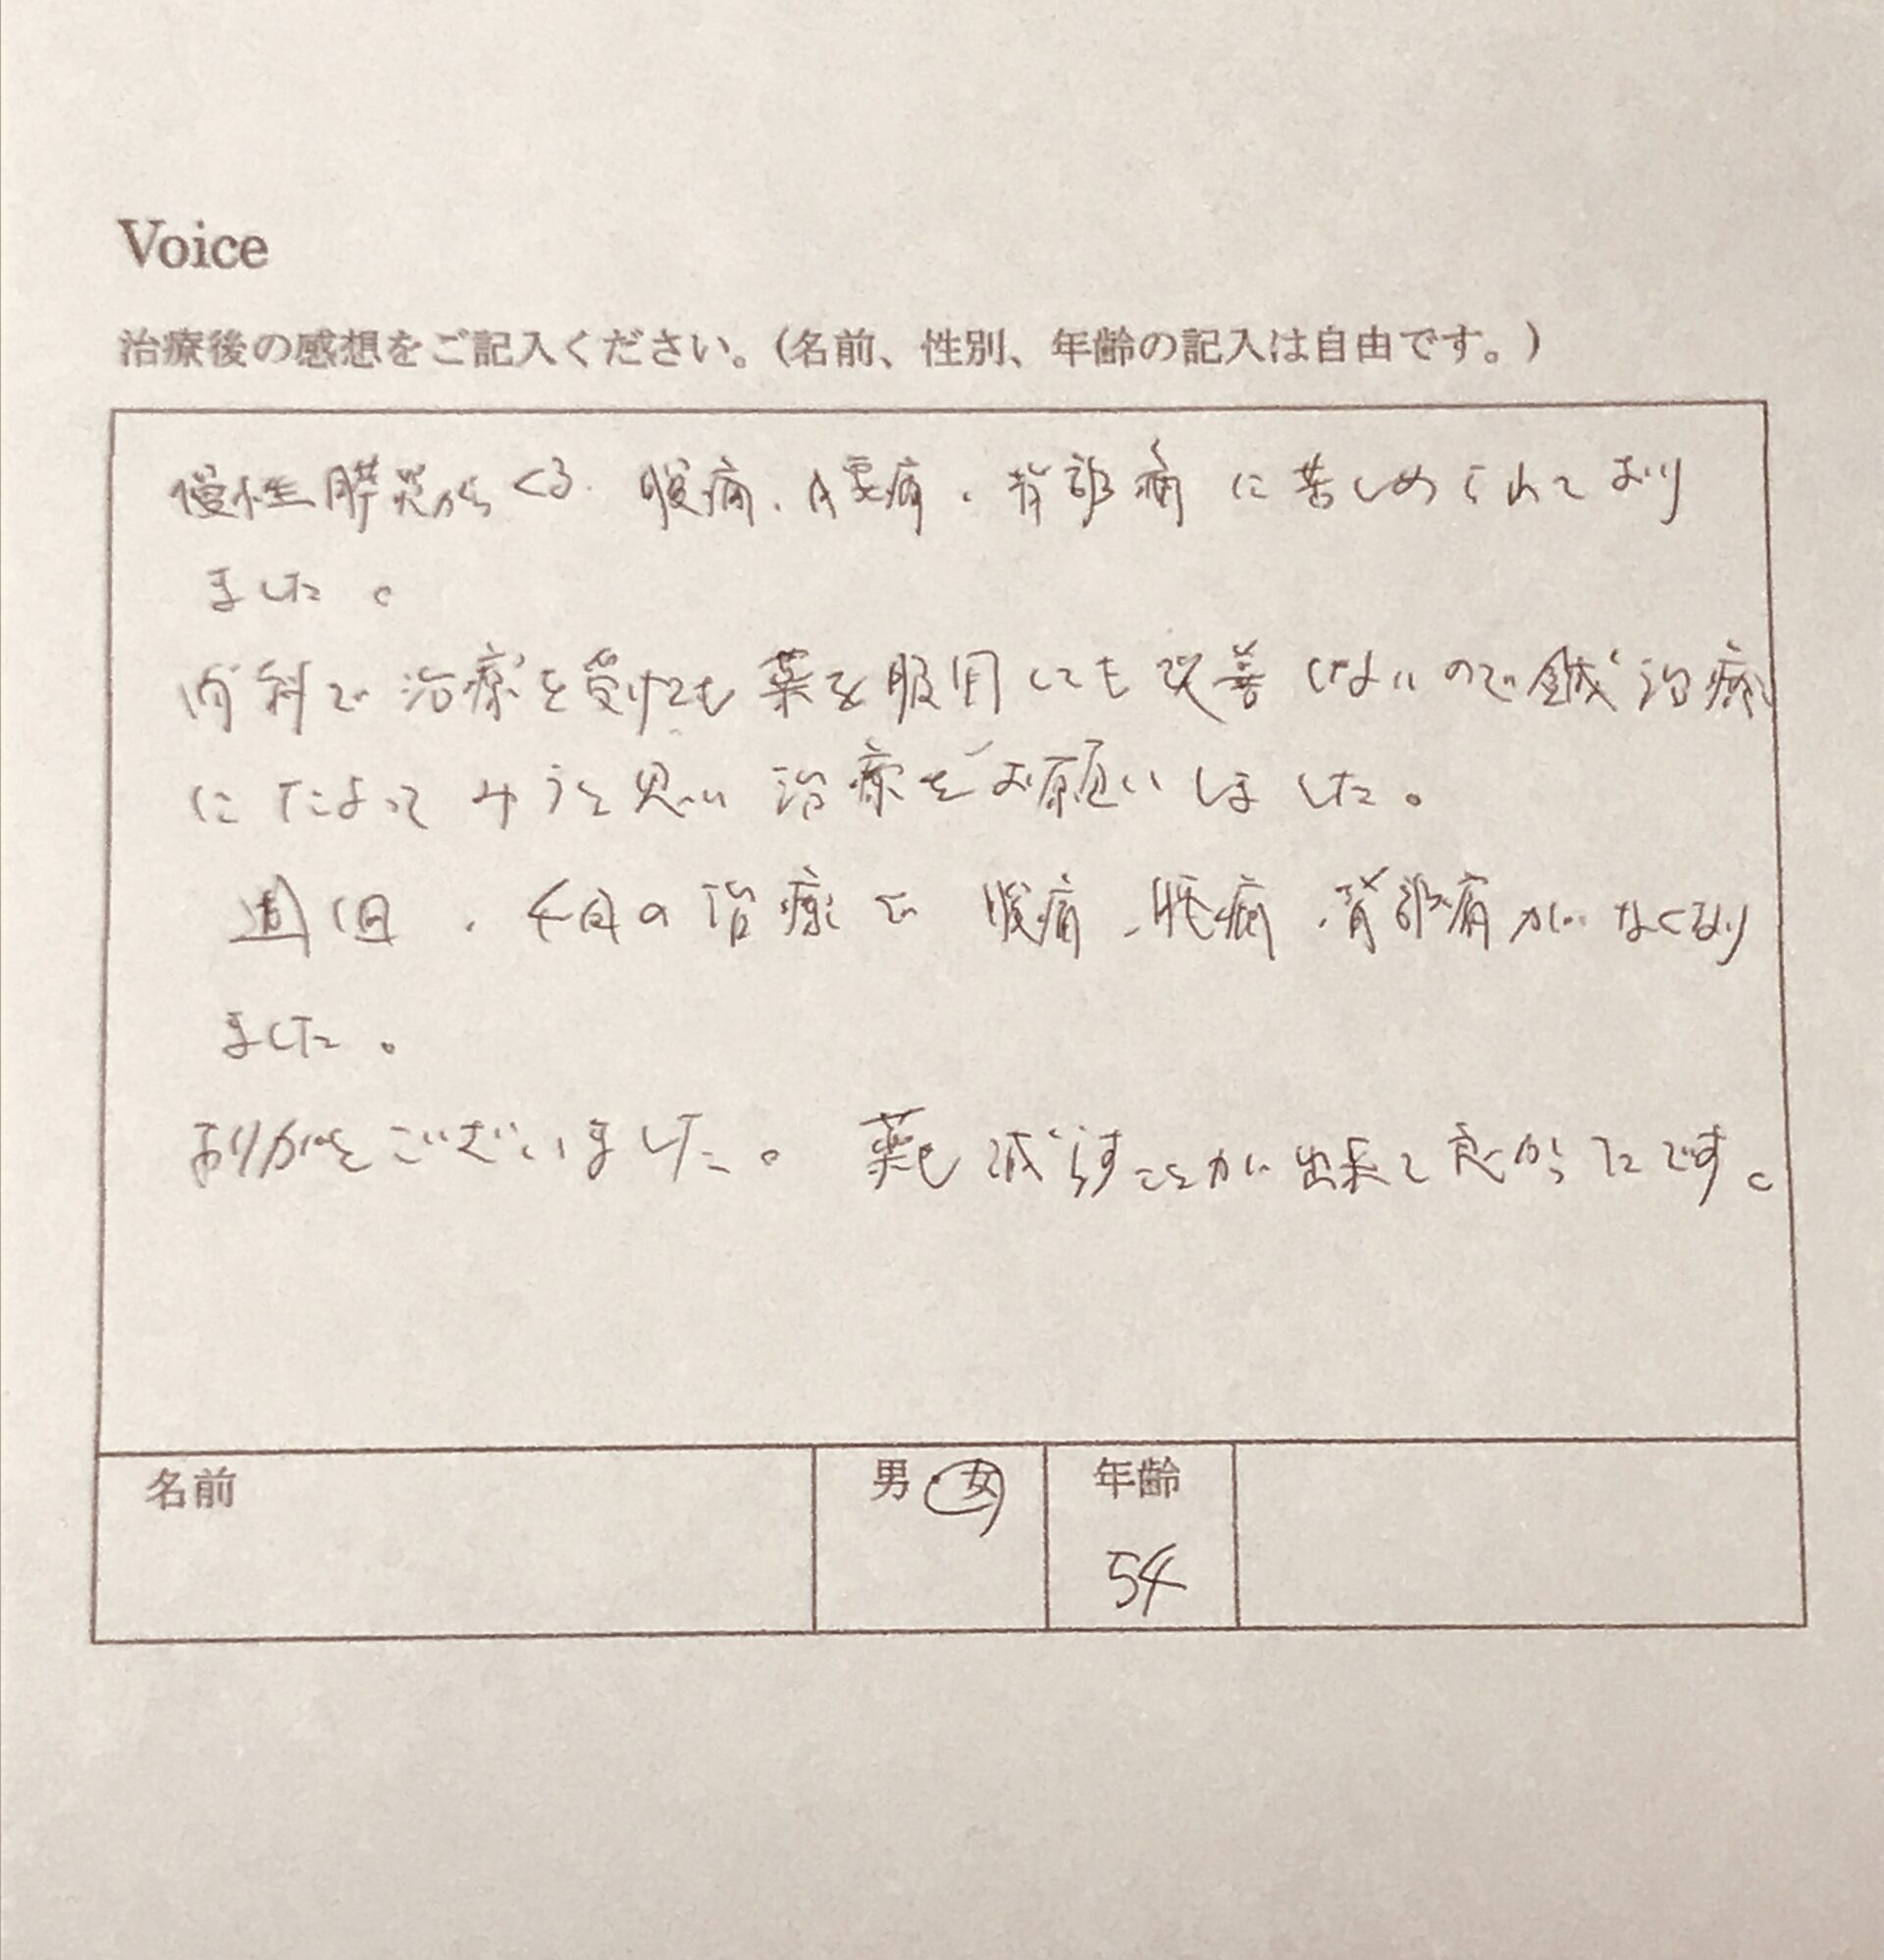 Voice
治療後の感想をご記入ください。(名前、性別、年齢の記入は自由です。)
慢性膵炎からくる 腹痛、腰痛、背部痛に苦しめられており
ました。
内科で治療を受けても薬を服用しても改善しないので鍼治療
にたよってみようと思い治療をお願いしました。
週1回、4回の治療で腹痛、腰痛、背部痛がなくなり
ました。
ありがとうございました。薬も減らすことが出来て良かったです。
名前
男・女
年齢
54